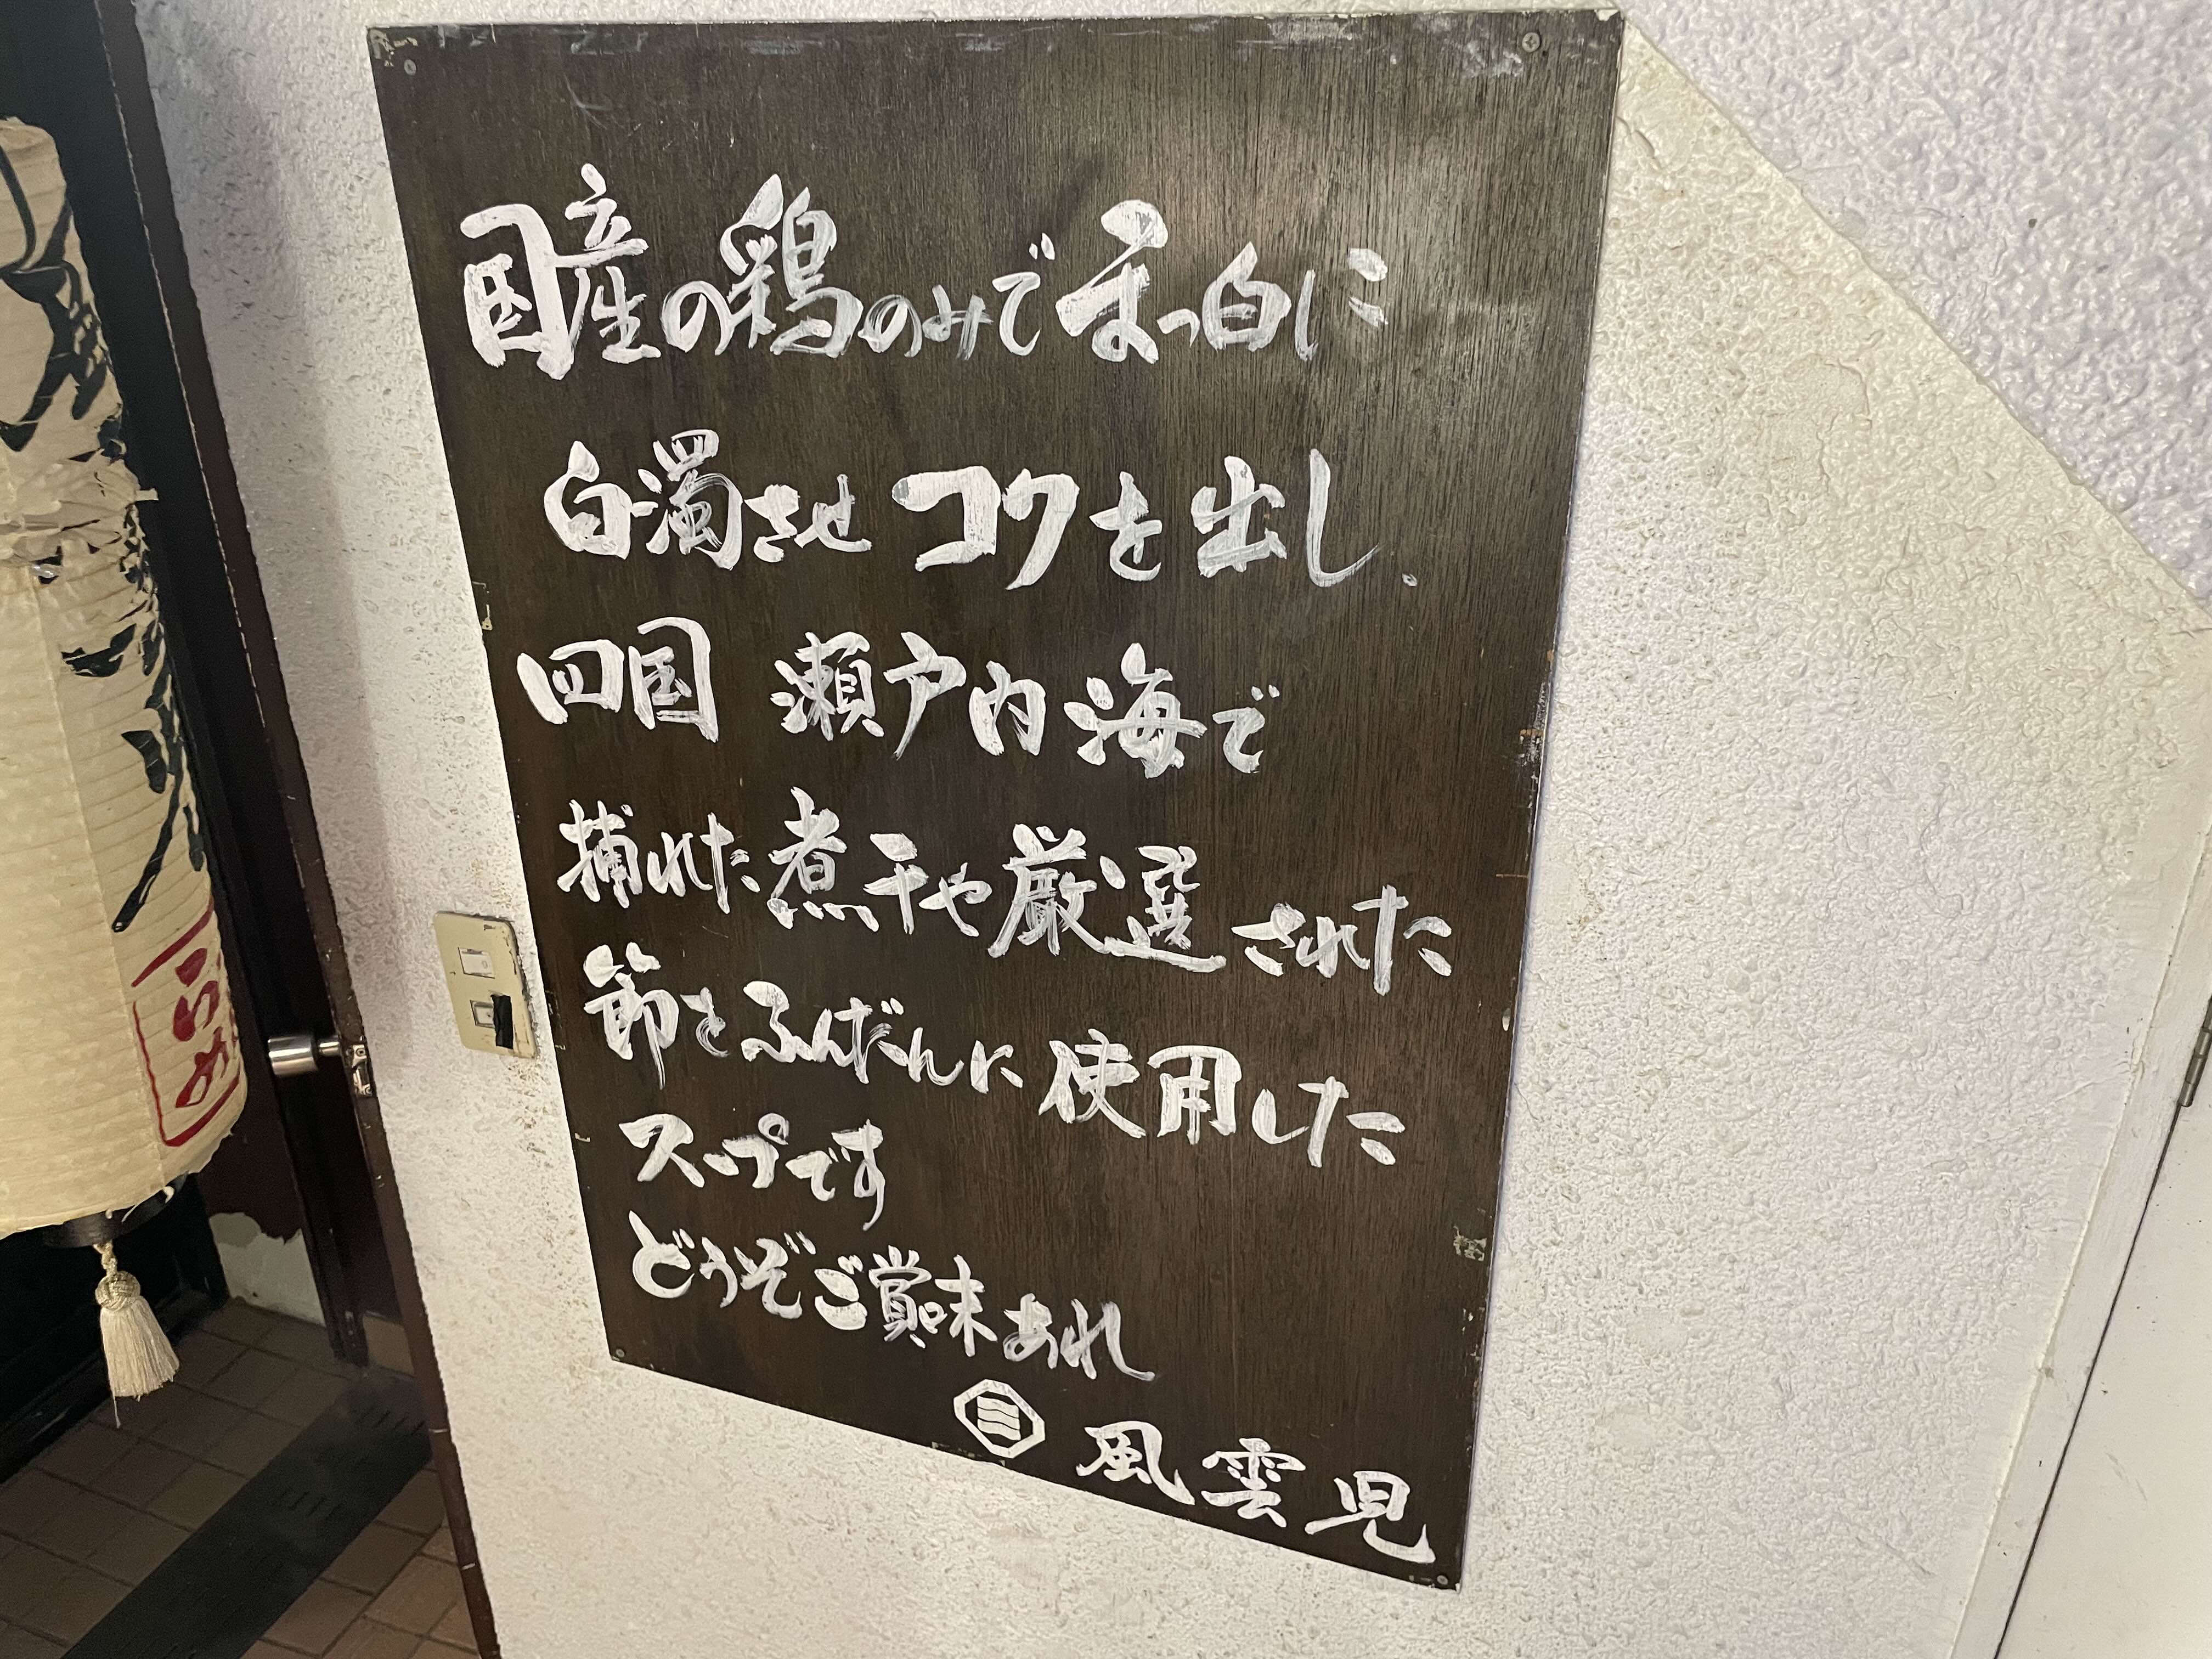 国産の鶏のみでまっ白に
白濁させ コクを出し、
四国 瀬戸内海で
捕れた煮干や厳選された
節をふんだんに使用した
スープです
どうぞご賞味あれ
風雲児